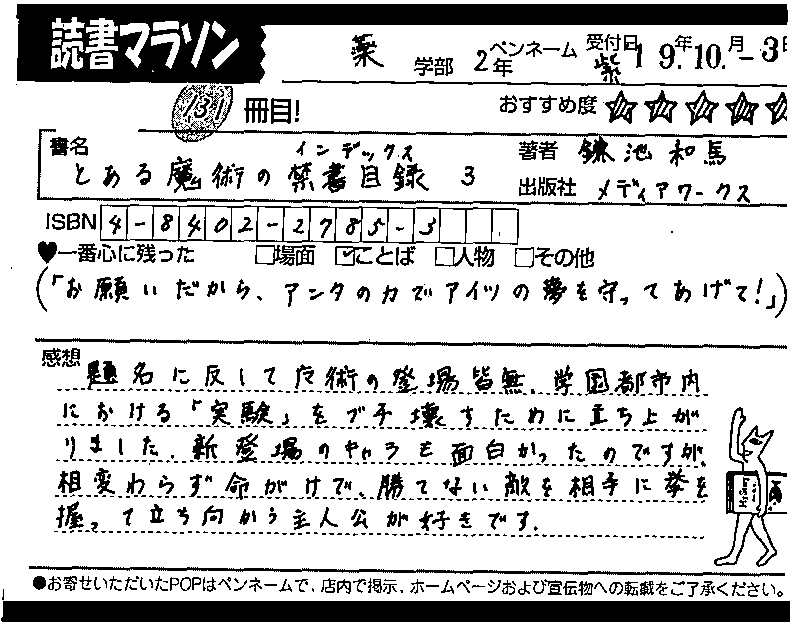 読書マラソン
薬 学部 2年 ペンネーム 紫 受付日 19年10月-3日
131 冊目! おすすめ度 ☆☆☆☆☆
書名 とある魔術の禁書目録 3
インデックス
著者 鎌池和馬
出版社 メディアワークス
ISBN 4-8402-2785-3
♥一番心に残った □場面 ☑ことば □人物 □その他
(「お願いだから、アンタの力でアイツの夢を守ってあげて!」)
感想
題名に反して魔術の登場皆無。学園都市内
における「実験」をブチ壊すために立ち上が
りました。新登場のキャラも面白かったのですが、
相変わらず命がけで、勝てない敵を相手に拳を
握って立ち向かう主人公が好きです。
●お寄せいただいたPOPはペンネームで、店内で掲示、ホームページおよび宣伝物への転載をご了承ください。